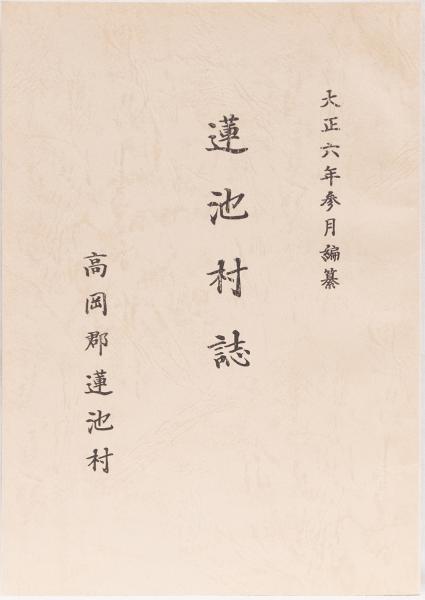 大正六年参月編纂
蓮池村誌
高岡郡蓮池村